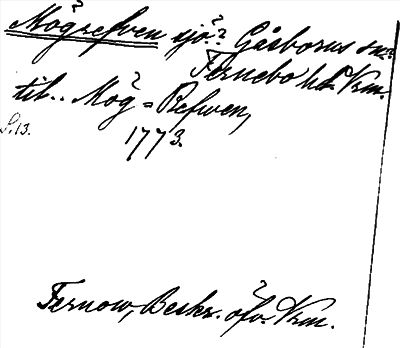 Mögrefven sjö? Gåsborns sn:
Fernebo hd Vrm.
till.. Mög = Refwen,
S. 13.
1773.
Fernow, Beskr. öfv. Vrm.